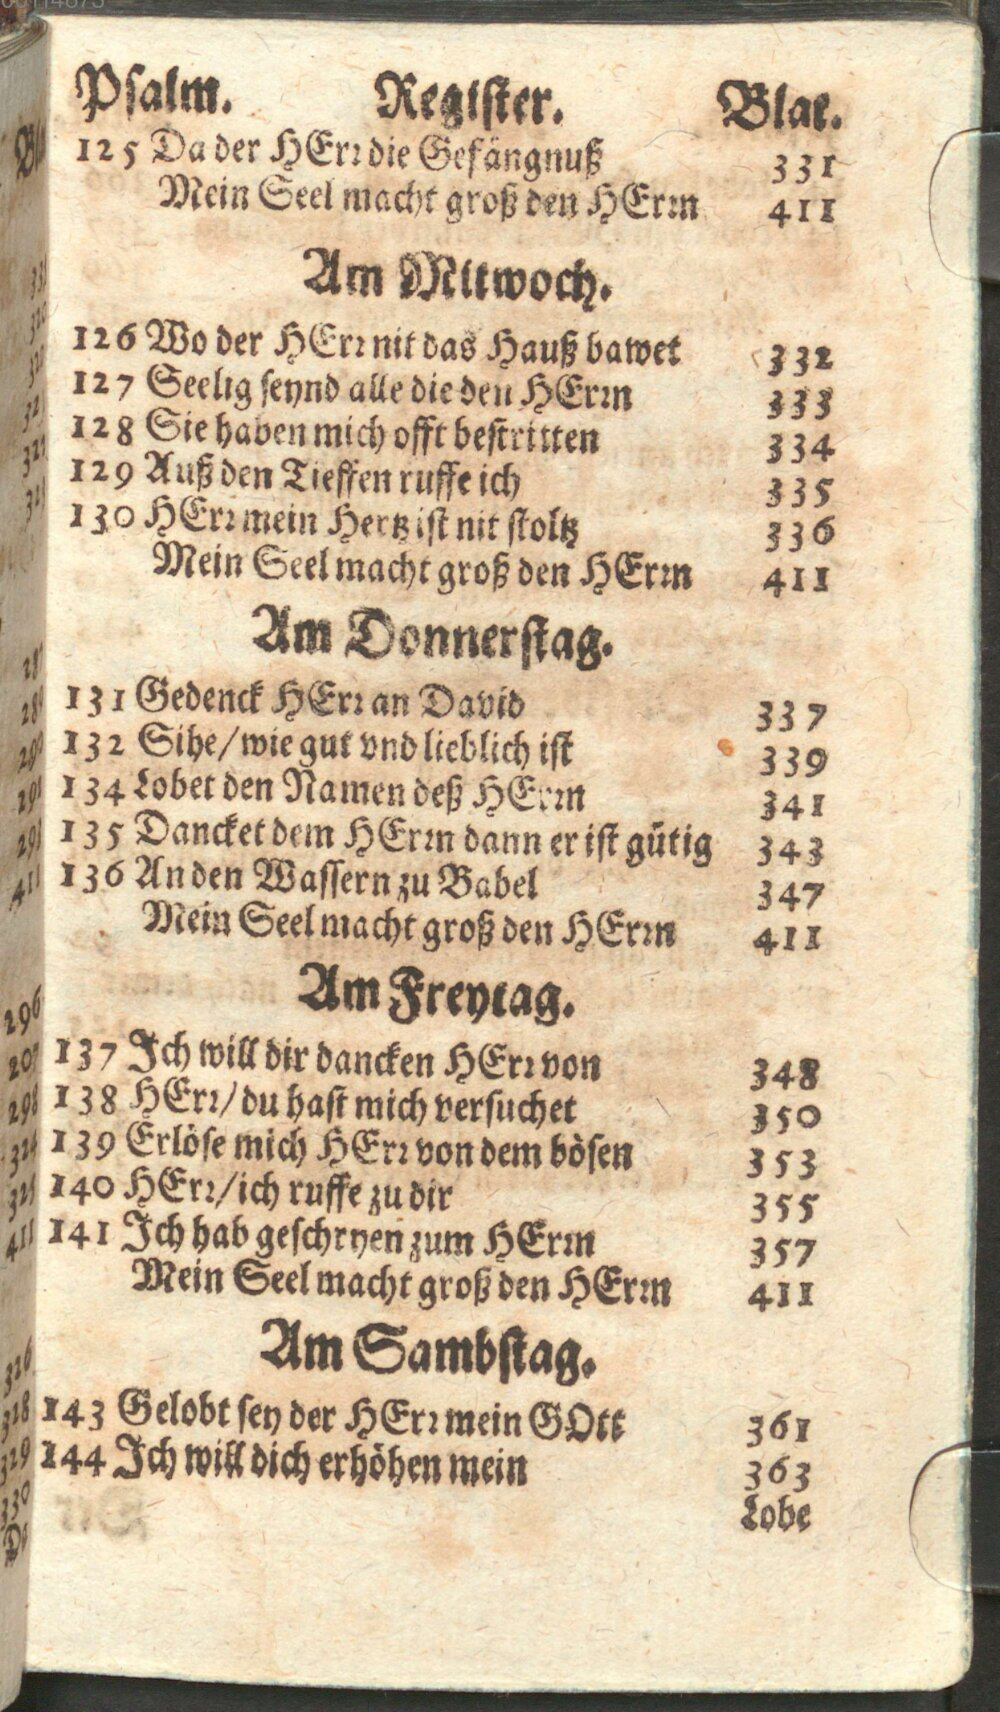 Psalm. Register. Blat.
125 Da der HErr die Gefängnuß 331
Mein Seel macht groß den HErrn 411
Am Mitwoch.
126 Wo der HErr nit das Hauß bawet 332
127 Seelig seynd alle die den HErrn 333
128 Sie haben mich offt bestritten 334
129 Auß den Tieffen ruffe ich 335
130 HErr mein Hertz ist nit stoltz 336
Mein Seel macht groß den HErrn 411
Am Donnerstag.
131 Gedenck HErr an David 337
132 Sihe/wie gut vnd lieblich ist 339
134 Lobet den Namen deß HErrn 341
135 Dancket dem HErrn dann er ist gütig 343
136 An den Wassern zu Babel 347
Mein Seel macht groß den HErrn 411
Am Freytag.
137 Ich will dir dancken HErr von 348
138 HErr/du hast mich versuchet 350
139 Erlöse mich HErr von dem bösen 353
140 HErr/ich ruffe zu dir 355
141 Ich hab geschryen zum HErrn 357
Mein Seel macht groß den HErrn 411
Am Sambstag.
143 Gelobt sey der HErr mein GOtt 361
144 Ich will dich erhöhen mein 363
Lobe